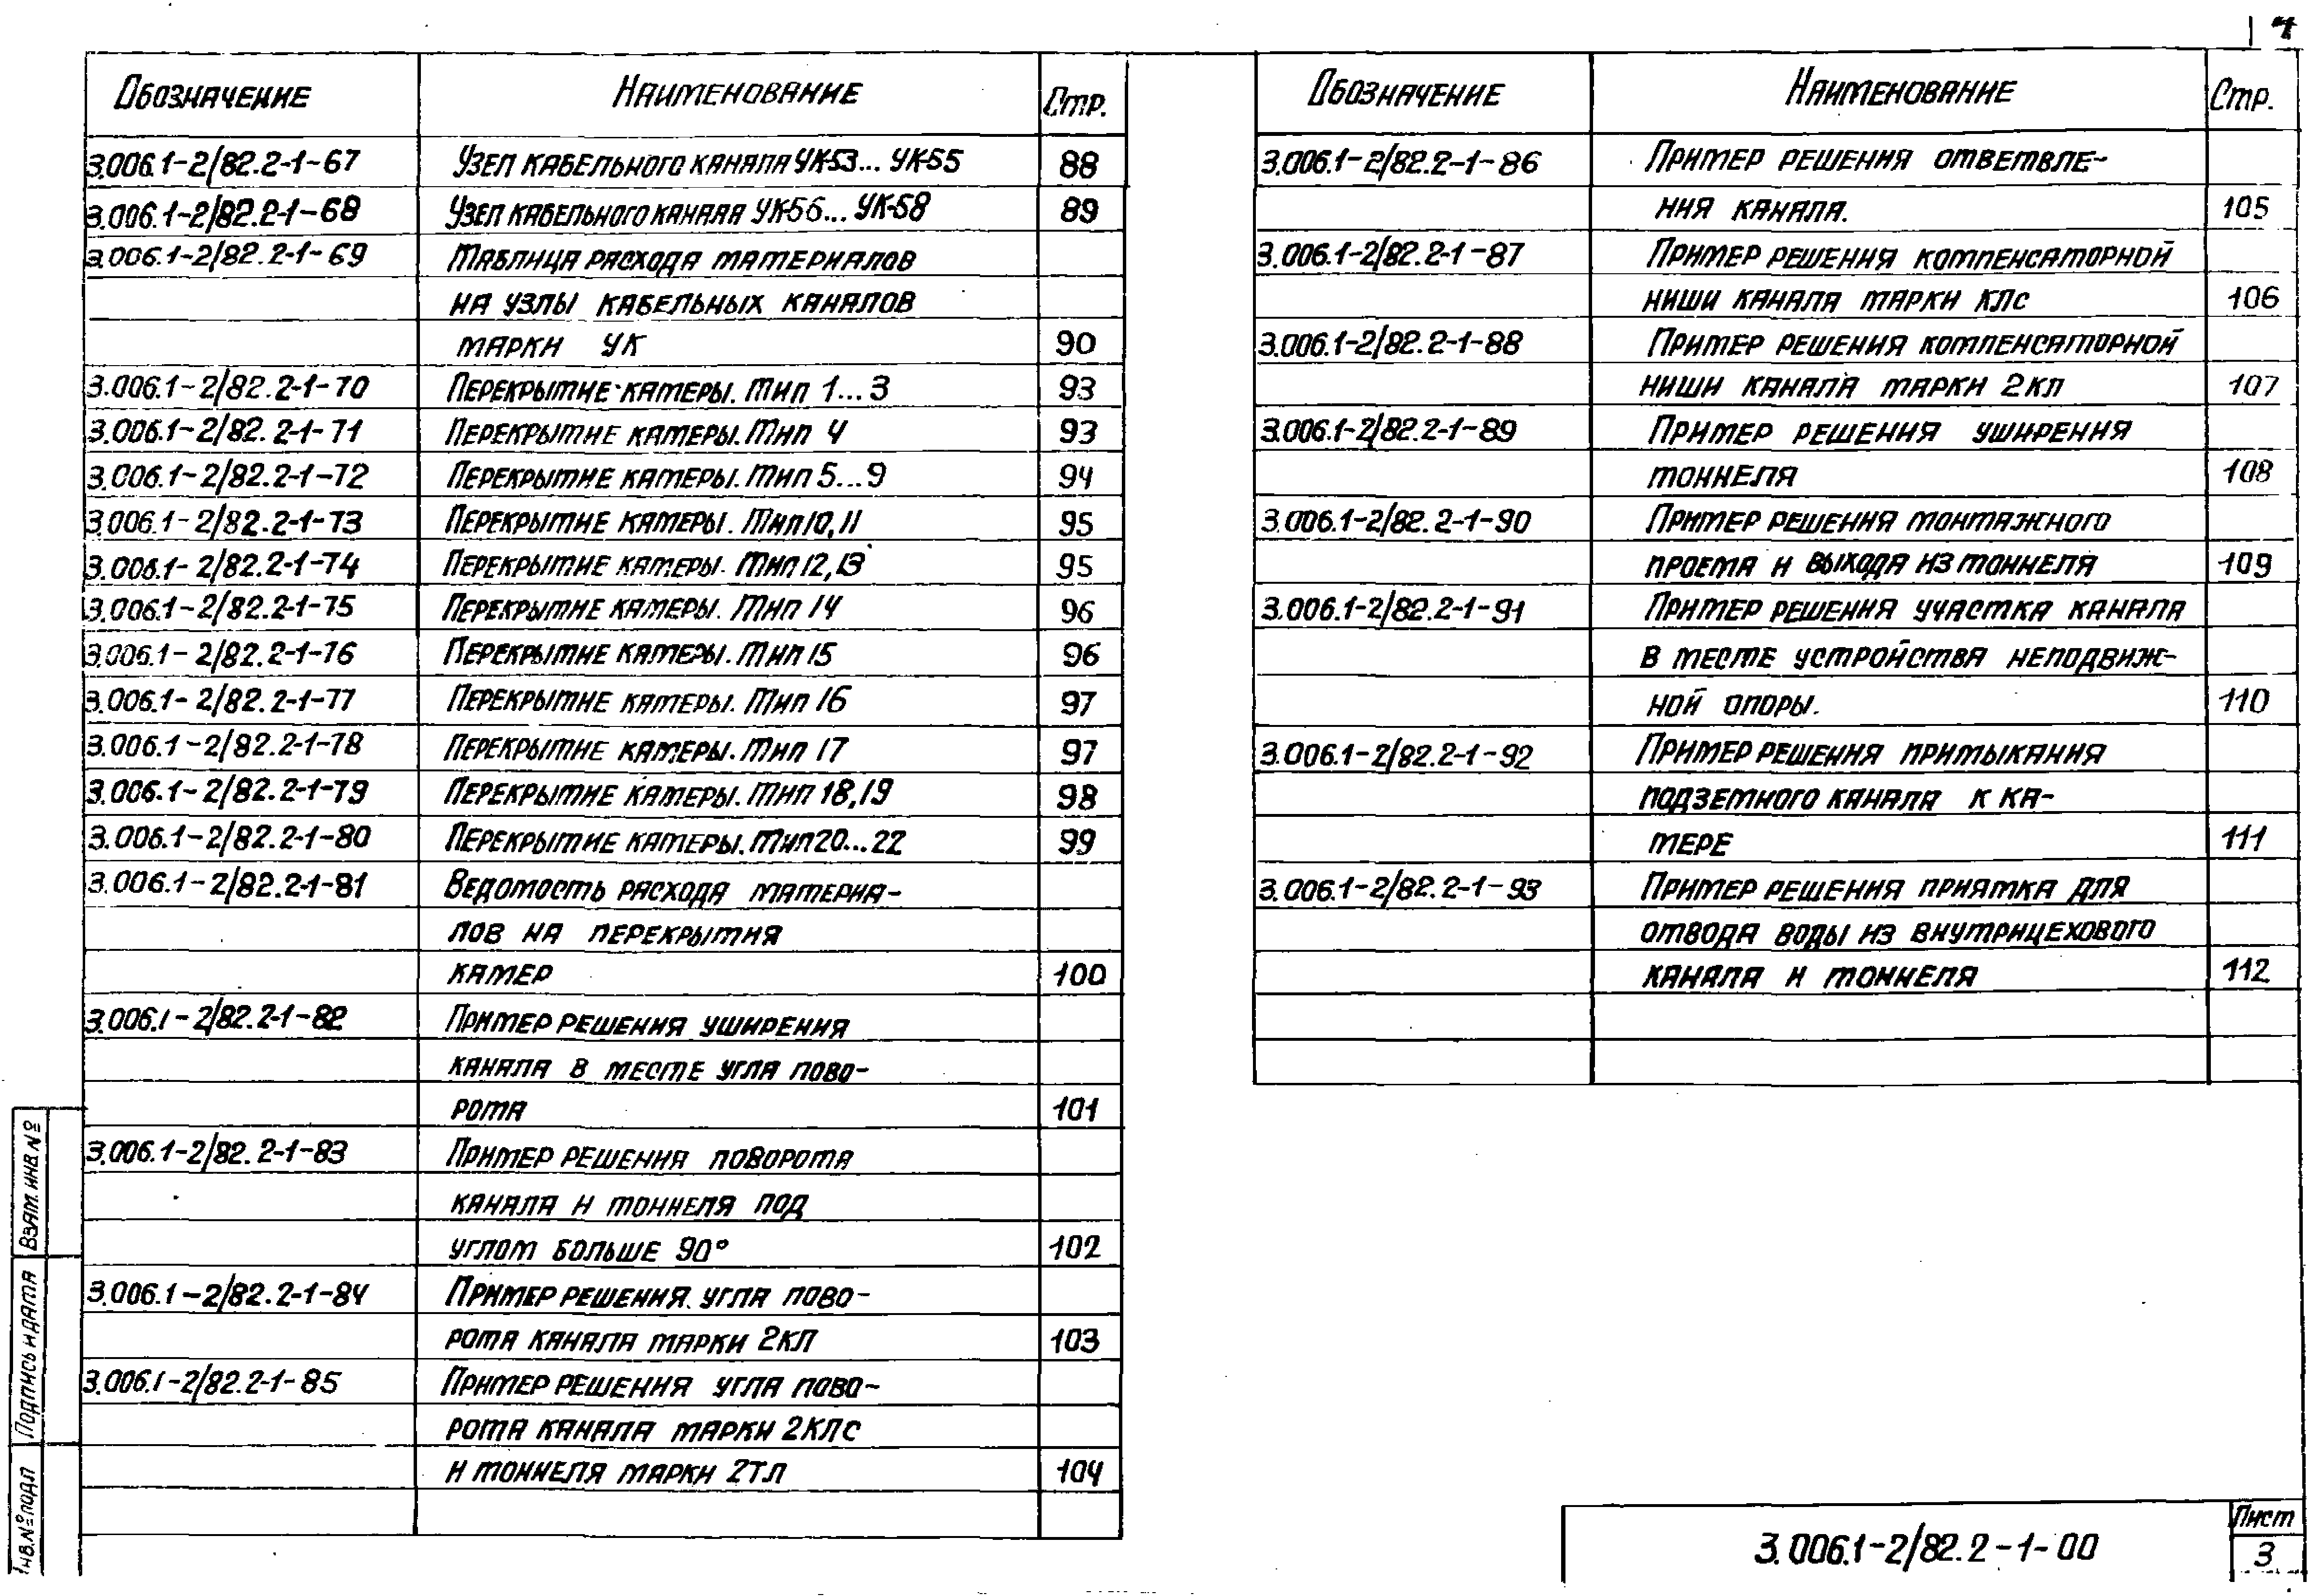 Обозначение Наименование Стр.
3.006.1-2/82.2-1-67 Узел кабельного канала УК-53... УК-55 88
3.006.1-2/82.2-1-68 Узел кабельного канала УК-56... УК-58 89
3.006.1-2/82.2-1-69 Таблица расхода материалов
на узлы кабельных каналов
марки УК 90
3.006.1-2/82.2-1-70 Перекрытие камеры. Тип 1...3 93
3.006.1-2/82.2-1-71 Перекрытие камеры. Тип 4 93
3.006.1-2/82.2-1-72 Перекрытие камеры. Тип 5...9 94
3.006.1-2/82.2-1-73 Перекрытие камеры. Тип 10,11 95
3.006.1-2/82.2-1-74 Перекрытие камеры. Тип 12,13 95
3.006.1-2/82.2-1-75 Перекрытие камеры. Тип 14 96
3.006.1-2/82.2-1-76 Перекрытие камеры. Тип 15 96
3.006.1-2/82.2-1-77 Перекрытие камеры. Тип 16 97
3.006.1-2/82.2-1-78 Перекрытие камеры. Тип 17 97
3.006.1-2/82.2-1-79 Перекрытие камеры. Тип 18,19 98
3.006.1-2/82.2-1-80 Перекрытие камеры. Тип 20...22 99
3.006.1-2/82.2-1-81 Ведомость расхода материа-
лов на перекрытия
камер 100
3.006.1-2/82.2-1-82 Пример решения уширения
канала в месте угла пово-
рота 101
3.006.1-2/82.2-1-83 Пример решения поворота
канала и тоннеля под
углом больше 90° 102
3.006.1-2/82.2-1-84 Пример решения угла пово-
рота канала марки 2КЛ 103
3.006.1-2/82.2-1-85 Пример решения угла пово-
рота канала марки 2КЛС
и тоннеля марки 2ТЛ 104
Обозначение Наименование Стр.
3.006.1-2/82.2-1-86 Пример решения ответвле-
ния канала. 105
3.006.1-2/82.2-1-87 Пример решения компенсаторной
ниши канала марки КЛс 106
3.006.1-2/82.2-1-88 Пример решения компенсаторной
ниши канала марки 2КЛ 107
3.006.1-2/82.2-1-89 Пример решения уширения
тоннеля 108
3.006.1-2/82.2-1-90 Пример решения монтажного
проема и выхода из тоннеля 109
3.006.1-2/82.2-1-91 Пример решения участка канала
в месте устройства неподвиж-
ной опоры. 110
3.006.1-2/82.2-1-92 Пример решения примыкания
подземного канала к ка-
мере 111
3.006.1-2/82.2-1-93 Пример решения приямка для
отвода воды из внутрицехового
канала и тоннеля 112
Взам. инв №
Подпись и дата
Инв.№ подл
3.006.1-2/82.2-1-00
Лист
3